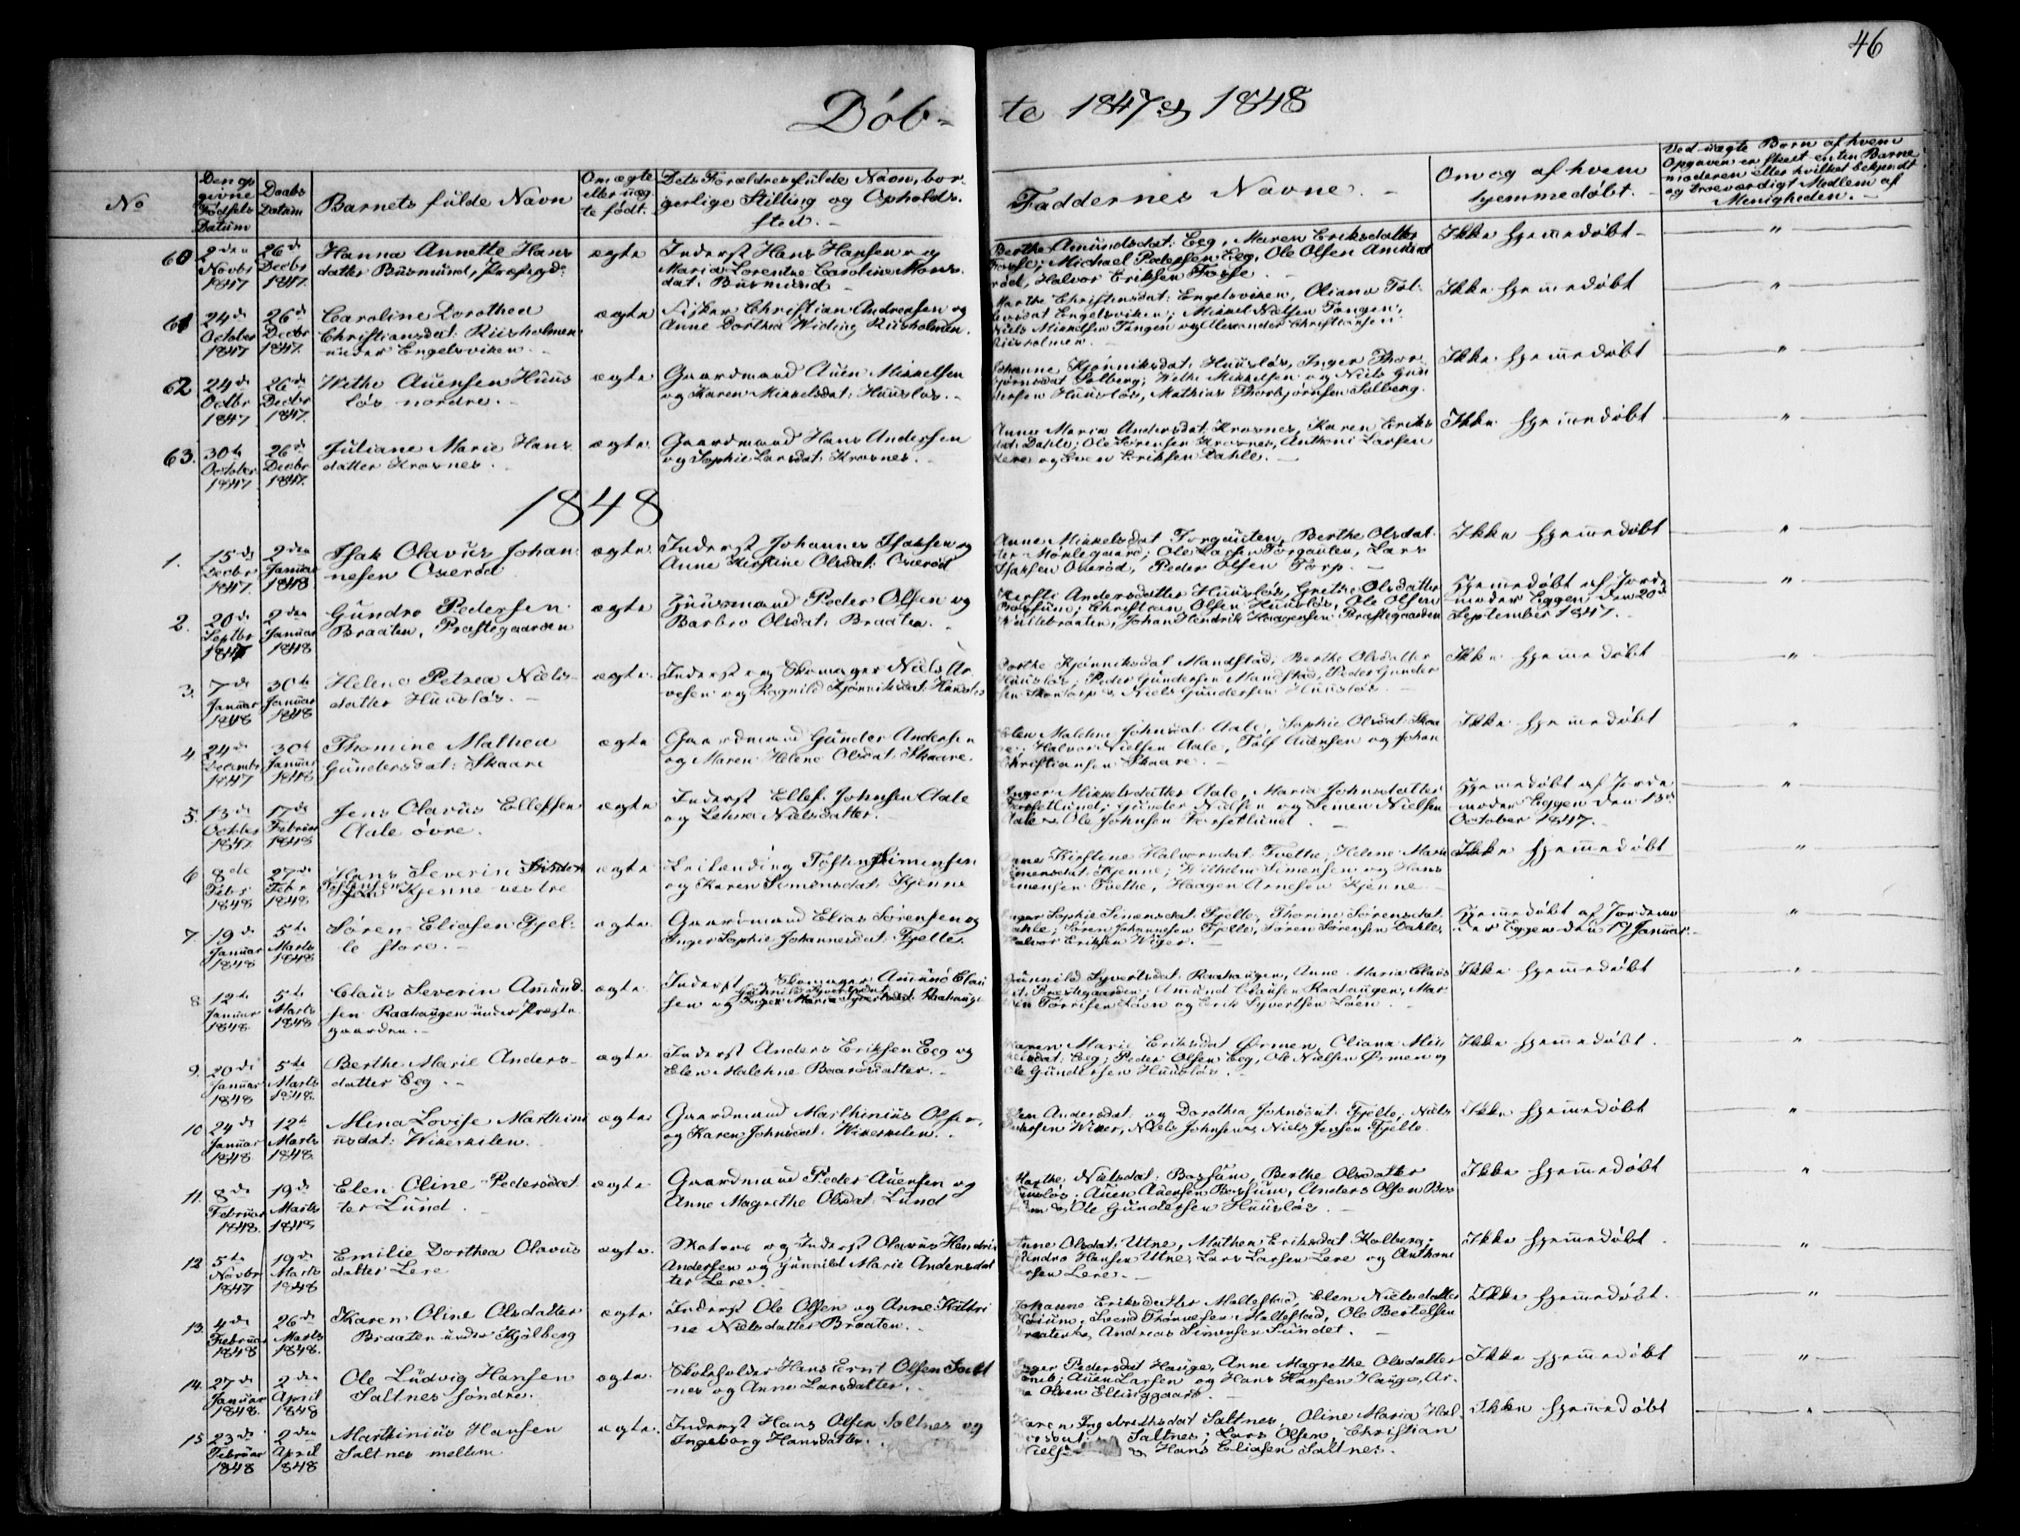 46
Døb- te 1847 & 1848
No
Den op
givne
Fødsels
Datum
Daabs
Datum
Barnets fulde Navn
Om ægte
eller uæg
te født.
Dets Forældres fulde Navn, bor-
gerlige Stilling og Opholds-
sted.
Faddernes Navne.
Om og af hvem
hjemmedøbt.
Ved uægte Børn af hvem
Opgaven er skeet enten Barne
moderen eller hvilket bekjendt
og troeværdigt Medlem af
Menigheden.
60
2den
Novbr
1847
26de
Decbr
1847.
Hanna Annette Hans
datter Busmund, Præstgd:
ægte
Inderst Hans Hansen og
Maria Lorentze Caroline Mons-
dat: Busmund
Berthe Amundsdat: Eeg, Maren Eriksdatter
Fosse; Michael Pedersen Eeg, Ole Olsen Amund
rød, Halvor Eriksen Fosse
Ikke hjemmedøbt
"
61
24de
October
1847
26de
Decbr
1847.
Caroline Dorothea
Christiansdat: Riisholmen
under Engelsviken.
ægte
Fisker Christian Andreasen og
Anne Dorthea Widing Riisholmen.
Marthe Christensdat: Engelsviken, Oliana Tol-
lefsdat Engelsviken; Mikkel Nielsen Tangen,
Niels Mikkelsen Tangen og Alexander Christiansen
Riisholmen.
Ikke hjemmedøbt
"
62
24de
Octbr
1847
26de
Decbr
1847.
Wethe Auensen Huus
løs nordre.
ægte
Gaardmand Auen Mikkelsen
og Karen Mikkelsdat: Huusløs.
Johanne Kjønniksdat: Huusløs, Inger Thor-
bjørnsdat Solberg; Wethe Mikkelsen og Niels Gun
dersen Huusløs, Mathias Thorbjørnsen Solberg.
Ikke hjemmedøbt
"
63.
30te
October
1847
26de
Decbr
1847.
Juliane Marie Hans
datter Krosnes.
ægte
Gaardmand Hans Andersen
og Sophie Larsdat: Krosnes.
Anna Maria Andersdat: Krosnes, Karen Eriks
dat: Dahle; Ole Sørensen Krosnes, Anthoni Larsen
Lere og Even Eriksen Dahle.
Ikke hjemmedøbt
"
1848
1.
15de
Decbr
1847.
2den
Januar
1848
Isak Olavus Johan-
nesen Oserød
ægte
Inderst Johannes Isaksen og
Anne Kirstine Olsdat: Oserød
Anne Mikkelsdat Torgauten, Berthe Olsdat-
ter Mørkegaard; Ole Larsen Torgauten, Lars
Isaksen Oserød, Peder Olsen Torp.
Ikke hjemmedøbt
"
2.
20de
Septbr
1847
2den
Januar
1848
Gundro Pedersen
Braaten, Præstegaarden
ægte
Huusmand Peder Olsen og
Barbro Olsdat: Braaten.
Kersti Andersdatter Huusløs, Grethe Olsdatter
Bossum; Christian Olsen Huusløs, Ole Olsen
Johan Hendrik Haagensen Præstegaarden
Hjemmedøbt af Jorde
moder Eggen den 20de
September 1847.
"
3.
7de
Januar
1848
30te
Januar
1848
Helene Petrea Niels-
datter Huusløs.
ægte
Inderst og Skomager Niels Ar-
vesen og Ragnild Kjønniksdat: Huusløs
Dorthe Kjønniksdat Mandstad, Berthe Olsdatter
Huusløs; Peder Gundersen Mandstad, Peder Gunder
sen Skontorp & Niels Gundersen Huusløs.
Ikke hjemmedøbt
"
4
24de
Decembr
1847
30te
Januar
1848
Thomine Mathea
Gundersdat: Skaare
ægte
Gaardmand Gunder Andersen
og Maren Helene Olsdat: Skaare.
Elen Malene Johnsdat Aale, Sophie Olsdat: Skaa
re; Halvor Nielsen Aale, Tolf Auensen og Johan
Christiansen Skaare.
Ikke hjemmedøbt
"
5.
13de
October
1847
17de
Februar
1848
Jens Olavus Ellefsen
Aale øvre.
ægte
Inderst Ellef Johnsen Aale
og Lehna Nielsdatter.
Inger Mikkelsdatter Aale, Maria Johnsdatter
Forsetlund; Gunder Nielsen og Semen Nielsen
Aale & Ole Johnsen Forsetlund
Hjemmedøbt af Jorde
moder Eggen den 13de
October 1847.
"
6
8de
Febr
1848
27de
Febr
1848
Hans Severin
Tostensen Kjenne vestre
ægte
Leilending Tosten Simensen
og Karen Simensdat: Kjenne
Anne Kirstine Halvorsdat: Tvethe, Helene Marie
Simensdat: Kjenne; Wilhelm Simensen og Hans
Simensen Tvethe, Haagen Arnesen Kjenne
Ikke hjemmedøbt
"
7
19de
Januar
1848
5te
Marts
1848
Søren Eliasen Fjel-
le store.
ægte
Gaardmand Elias Sørensen og
Inger Sophie Johannesdat: Fjelle.
Inger Sophie Simensdat: Fjelle, Thorine Sørensdat:
Dahle; Søren Johannesen Fjelle, Søren Sørensen Dahle,
Halvor Eriksen Wiger.
Hjemmedøbt af Jordemo
der Eggen den 19 Januar.
"
8
12te
Januar
1848
5te
Marts
1848
Claus Severin Amund-
sen Raahaugen under Præste
gaarden.
ægte
Inderst og Skomager Amund Clau
sen og Gunnild Syvertsdat Inger Maria Syvertsdat Raahauge
Gunnild Syvertsdat: Raahaugen, Anne Maria Claus
dat: Præstegaarden; Amund Clausen Raahaugen, Mar
Torrisen Løen og Erik Syvertsen Løen.
Ikke hjemmedøbt
"
9.
20de
Januar
1848
5te
Marts
1848.
Berthe Marie Anders-
datter Eeg.
ægte
Inderst Anders Eriksen Eeg og
Elen Malehne Baarsdatter.
Karen Marie Eriksdat Ørmen, Oliana Mik
kelsdat: Eeg; Peder Olsen Eeg, Ole Nielsen Ørmen og
Ole Gundersen Huusløs.
Ikke hjemmedøbt
"
10
24de
Januar
1848
12te
Marts
1848.
Mina Lovise Marthini
usdat: Wikerkilen
ægte
Gaardmand Marthinius Olsen
og Karen Johnsdat: Wikerkilen.
Elen Andersdat: og Dorothea Johnsdat: Fjelle; Niels
Wiker, Niels Johnsen & Niels Jensen Fjelle.
Ikke hjemmedøbt
"
11.
8de
Februar
1848.
19de
Marts
1848
Elen Oline Pedersdat
ter Lund.
ægte
Gaardmand Peder Auensen og
Anne Magrethe Olsdat: Lund
Marthe Nielsdat: Bossum, Berthe Olsdatter
Huusløs; Auen Auensen Bossum, Anders Olsen Bos
sum & Ole Gundersen Huusløs
Ikke hjemmedøbt
"
12
5te
Novbr
1847
19de
Marts
1848
Emilie Dorthea Olavus
datter Lere
ægte.
Matros og Inderst Olavus Hendrik
Andersen og Gunnild Marie Andersdat
ter Lere.
Anne Olsdat: Utne, Mathea Eriksdat Kolberg;
Gundro Hansen Utne, Lars Larsen Lere og Anthoni
Larsen Lere.
Ikke hjemmedøbt
"
13
4de
Februar
1848
26de
Marts
1848.
Karen Oline Olsdatter
Braaten under Kjølberg
ægte
Inderst Ole Olsen og Anne Kathri
ne Nielsdatter Braaten.
Johanne Eriksdatter Mallestad, Elen Nielsdatter
Svend Thoresen Mallestad, Ole Bertelsen
Braaten &, Andreas Simensen Sundet.
Ikke hjemmedøbt.
"
14.
27de
Januar
1848.
2den
April
1848
Ole Ludvig Hansen
Saltnes søndre.
ægte.
Skoleholder Hans Ernt Olsen Salt
nes og Anne Larsdatter.
Inger Pedersdat Hauge, Anne Magrethe Olsdatter
Tomb; Auen Larsen og Hans Hansen Hauge, Ar-
ne Olsen Elinggaard
Ikke hjemmedøbt
"
15
23de
Februar
1848
2den
April
1848
Marthinius Hansen
Saltnes mellem
ægte.
Inderst Hans Olsen Saltnes og
Ingeborg Hansdatter.
Karen Ingebrethsdat Saltnes, Oline Maria Hal-
vorsdat Saltnes; Lars Olsen, Christian
& Hans Eliasen Saltnes.
Ikke hjemmedøbt
"